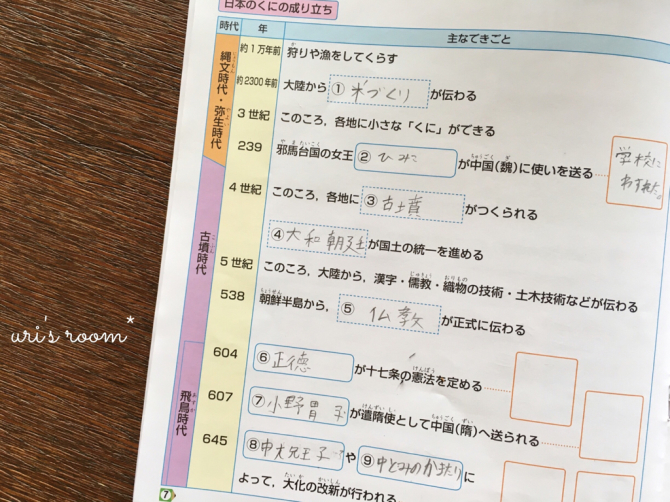 日本のくにの成り立ち
時代 年 主なできごと
縄文時代・弥生時代
約1万年前 狩りや漁をしてくらす
約2300年前 大陸から①米づくりが伝わる
3世紀 このころ,各地に小さな「くに」ができる
239 邪馬台国の女王②ひみこが中国(魏)に使いを送る
学校に
古墳時代
4世紀 このころ,各地に③古墳がつくられる
④大和朝廷が国土の統一を進める
5世紀 このころ,大陸から,漢字・儒教・織物の技術・土木技術などが伝わる
538 朝鮮半島から,⑤仏教が正式に伝わる
飛鳥時代
604 ⑥正徳が十七条の憲法を定める
607 ⑦小野胃子が遣隋使として中国(隋)へ送られる
645 ⑧中大兄王子や⑨中とみのかまたりに
よって,大化の改新が行われる
7
uri's room*